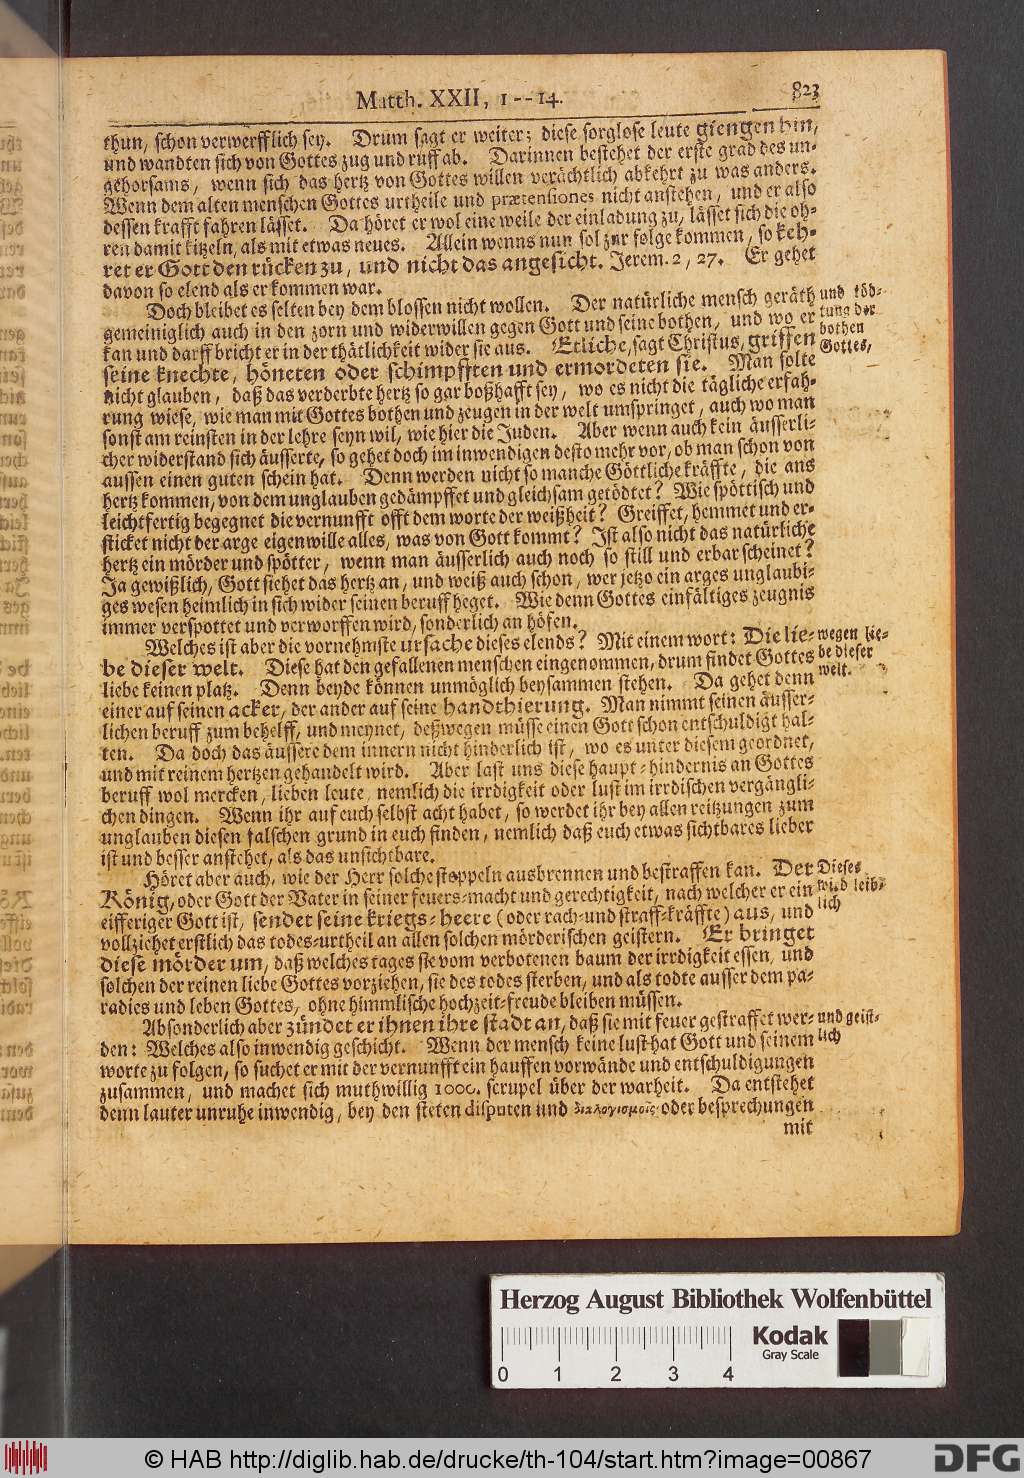 Matth. XXII, 1--14. 823
thun, schon verwerfflich sey. Drum sagt er weiter; diese sorglose leute giengen hin,
und wandten sich von Gottes zug und ruff ab. Darinnen bestehet der erste grad des un-
gehorsams, wenn sich das hertz von Gottes willen verächtlich abkehrt zu was anders.
Wenn dem alten menschen Gottes urtheile und prætensiones nicht anstehen, und er also
dessen krafft fahren lässet. Da höret er wol eine weile der einladung zu, lässet sich die oh-
ren damit kitzeln, als mit etwas neues. Allein wenns nun sol zur folge kommen, so keh-
ret er Gott den rücken zu, und nicht das angesicht. Jerem. 2, 27. Er gehet
davon so elend als er kommen war.
Doch bleibet es selten bey dem blossen nicht wollen. Der natürliche mensch geräth
gemeiniglich auch in den zorn und widerwillen gegen Gott und seine bothen, und wo er
kan und darff bricht er in der thätlichkeit wider sie aus. Etliche, sagt Christus, griffen
seine knechte, höneten oder schimpfften und ermordeten sie. Man solte
nicht glauben, daß das verderbte hertz so gar boßhafft sey, wo es nicht die tägliche erfah-
rung wiese, wie man mit Gottes bothen und zeugen in der welt umspringet, auch wo man
sonst am reinsten in der lehre seyn wil, wie hier die Juden. Aber wenn auch kein äusserli-
cher widerstand sich äusserte, so gehet doch im inwendigen desto mehr vor, ob man schon von
aussen einen guten schein hat. Denn werden nicht so manche Göttliche kräffte, die ans
hertz kommen, von dem unglauben gedämpffet und gleichsam getödtet? Wie spöttisch und
leichtfertig begegnet die vernunfft offt dem worte der weißheit? Greiffet, hemmet und er-
sticket nicht der arge eigenwille alles, was von Gott kommt? Ist also nicht das natürliche
hertz ein mörder und spötter, wenn man äusserlich auch noch so still und erbar scheinet?
Ja gewißlich, Gott siehet das hertz an, und weiß auch schon, wer jetzo ein arges unglaubi-
ges wesen heimlich in sich wider seinen beruff heget. Wie denn Gottes einfältiges zeugnis
immer verspottet und verworffen wird, sonderlich an höfen.
Welches ist aber die vornehmste ursache dieses elends? Mit einem wort: Die lie-
be dieser welt. Diese hat den gefallenen menschen eingenommen, drum findet Gottes
liebe keinen platz. Denn beyde können unmöglich beysammen stehen. Da gehet denn
einer auf seinen acker, der ander auf seine handthierung. Man nimmt seinen äusser-
lichen beruff zum behelff, und meynet, deßwegen müsse einen Gott schon entschuldigt hal-
ten. Da doch das äussere dem innern nicht hinderlich ist, wo es unter diesem geordnet,
und mit reinem hertzen gehandelt wird. Aber last uns diese haupt-hindernis an Gottes
beruff wol mercken, lieben leute, nemlich die irrdigkeit oder lust im irrdischen vergängli-
chen dingen. Wenn ihr auf euch selbst acht habet, so werdet ihr bey allen reitzungen zum
unglauben diesen falschen grund in euch finden, nemlich daß euch etwas sichtbares lieber
ist und besser anstehet, als das unsichtbare.
Höret aber auch, wie der Herr solche stoppeln ausbrennen und bestraffen kan. Der
König, oder Gott der Vater in seiner feuers-macht und gerechtigkeit, nach welcher er ein
eifferiger Gott ist, sendet seine kriegs-heere (oder rach-und straff-kräffte) aus, und
vollziehet erstlich das todes-urtheil an allen solchen mörderischen geistern. Er bringet
diese mörder um, daß welches tages sie vom verbotenen baum der irrdigkeit essen, und
solchen der reinen liebe Gottes vorziehen, sie des todes sterben, und als todte ausser dem pa-
radies und leben Gottes, ohne himmlische hochzeit-freude bleiben müssen.
Absonderlich aber zündet er ihnen ihre stadt an, daß sie mit feuer gestraffet wer-
den: Welches also inwendig geschicht. Wenn der mensch keine lust hat Gott und seinem
worte zu folgen, so suchet er mit der vernunfft ein hauffen vorwände und entschuldigungen
zusammen, und machet sich muthwillig 1000. scrupel über der warheit. Da entstehet
denn lauter unruhe inwendig, bey den steten disputen und διαλογισμοῖς oder besprechungen
mit
und töd-
tung der
bothen
Gottes,
wegen lie-
be dieser
welt.
Dieses
wird leib-
lich
und geist-
lich
Herzog August Bibliothek Wolfenbüttel
0 1 2 3 4
Kodak
Gray Scale
© HAB http://diglib.hab.de/drucke/th-104/start.htm?image=00867
DFG